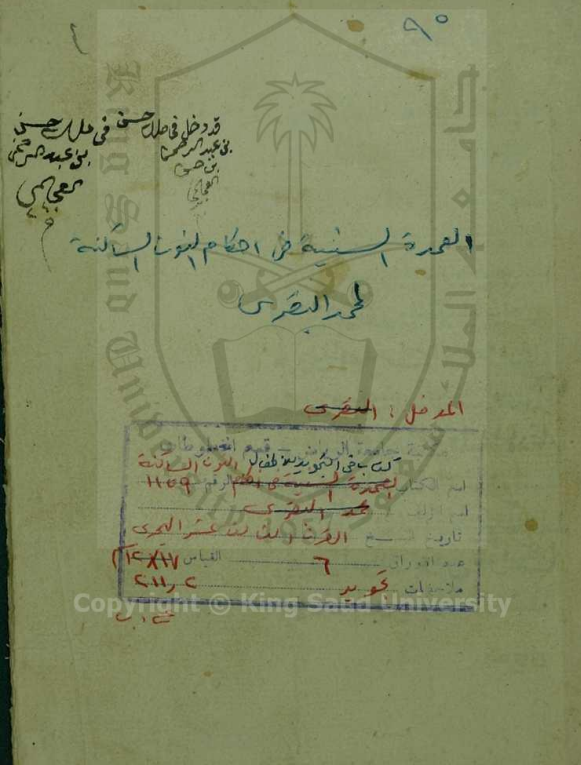 ٩٠
قد دخل في ملك حسن
بن عبد الرحمن
بن حسن
العجالي
في ملك حسن
بن عبد الرحمن
العجالي
العمدة السنية في احكام النون الساكنة
لمحمد البقري
المدخل : البقري
مكتبة جامعة الرياض - قسم المخطوطات
كتاب في التجويد
النون الساكنة
اسم الكتاب العمدة السنية في احكام الرقم ١١٥٩
اسم المؤلف محمد البقري
تاريخ النسخ القرن الثالث عشر الهجري
عدد الاوراق ٦ القياس ١٧×١٢
ملاحظات تجويد ٢١١,٢
Copyright © King Saud University
King Saud University
جامعة الملك سعود